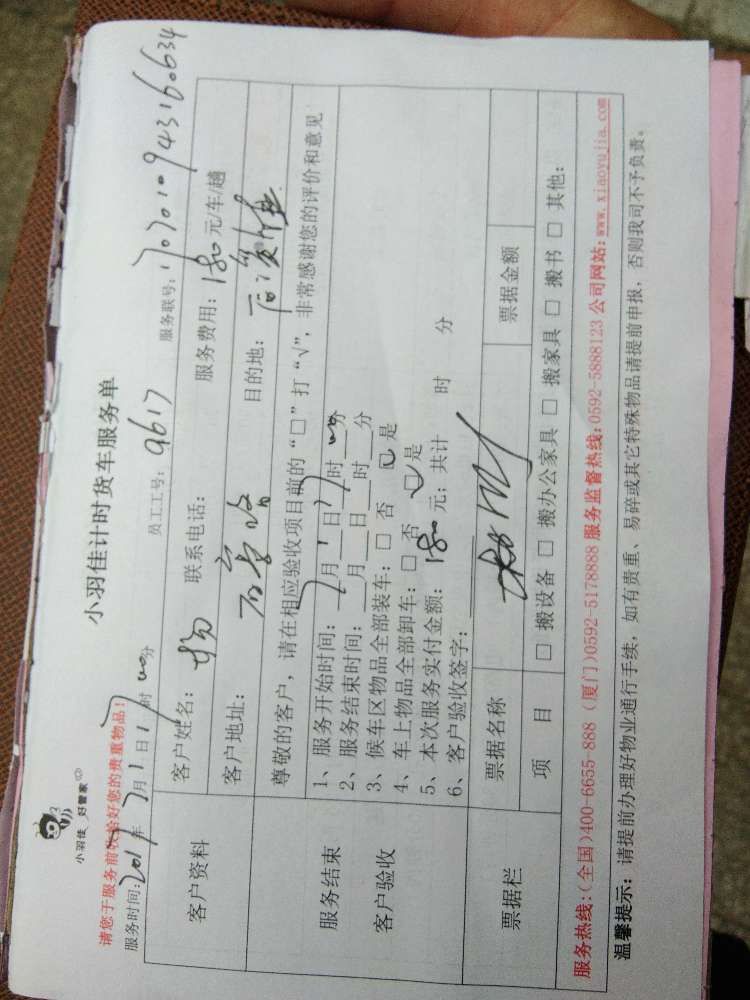 小羽佳 好管家
小羽佳计时货车服务单
请您于服务前收拾好您的贵重物品!
服务时间: 2017年7月1日17时00分 员工工号: 9617 服务联号: 17070109943160634
客户资料
客户姓名: 杨 联系电话: 服务费用: 180元/车/趟
客户地址: 目的地:
尊敬的客户,请在相应验收项目前的“□”打“√”,非常感谢您的评价和意见
服务结束
客户验收
1、服务开始时间: 7月1日17时00分
2、服务结束时间: 月 日 时 分
3、候车区物品全部装车: □ 否 □ 是
4、车上物品全部卸车: □ 否 □ 是
5、本次服务实付金额: 180元; 共计 时 分
6、客户验收签字:
票据栏 票据名称 票据金额
项 目 □ 搬设备 □ 搬办公家具 □ 搬家具 □ 搬书 □ 其他:
服务热线:(全国)400-6655-888 (厦门)0592-5178888 服务监督热线:0592-5888123 公司网站: www.xiaoyujia.com
温馨提示: 请提前办理好物业通行手续, 如有贵重、易碎或其它特殊物品请提前申报, 否则我司不予负责。